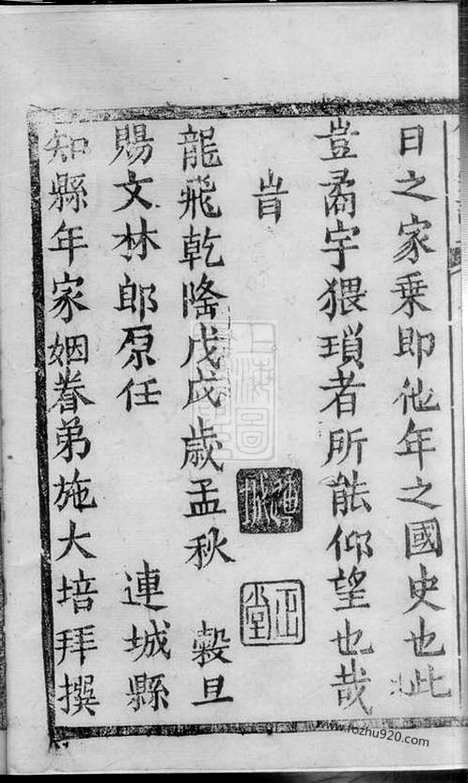 日之家乗即他年之國史也此
豈矞宇猥瑣者所能仰望也哉
旹
龍飛乾隆戊戌歲孟秋 穀旦
賜文林郎原任 連城縣
知縣年家姻眷弟施大培拜撰
正堂
上海圖
www.fozhu920.com